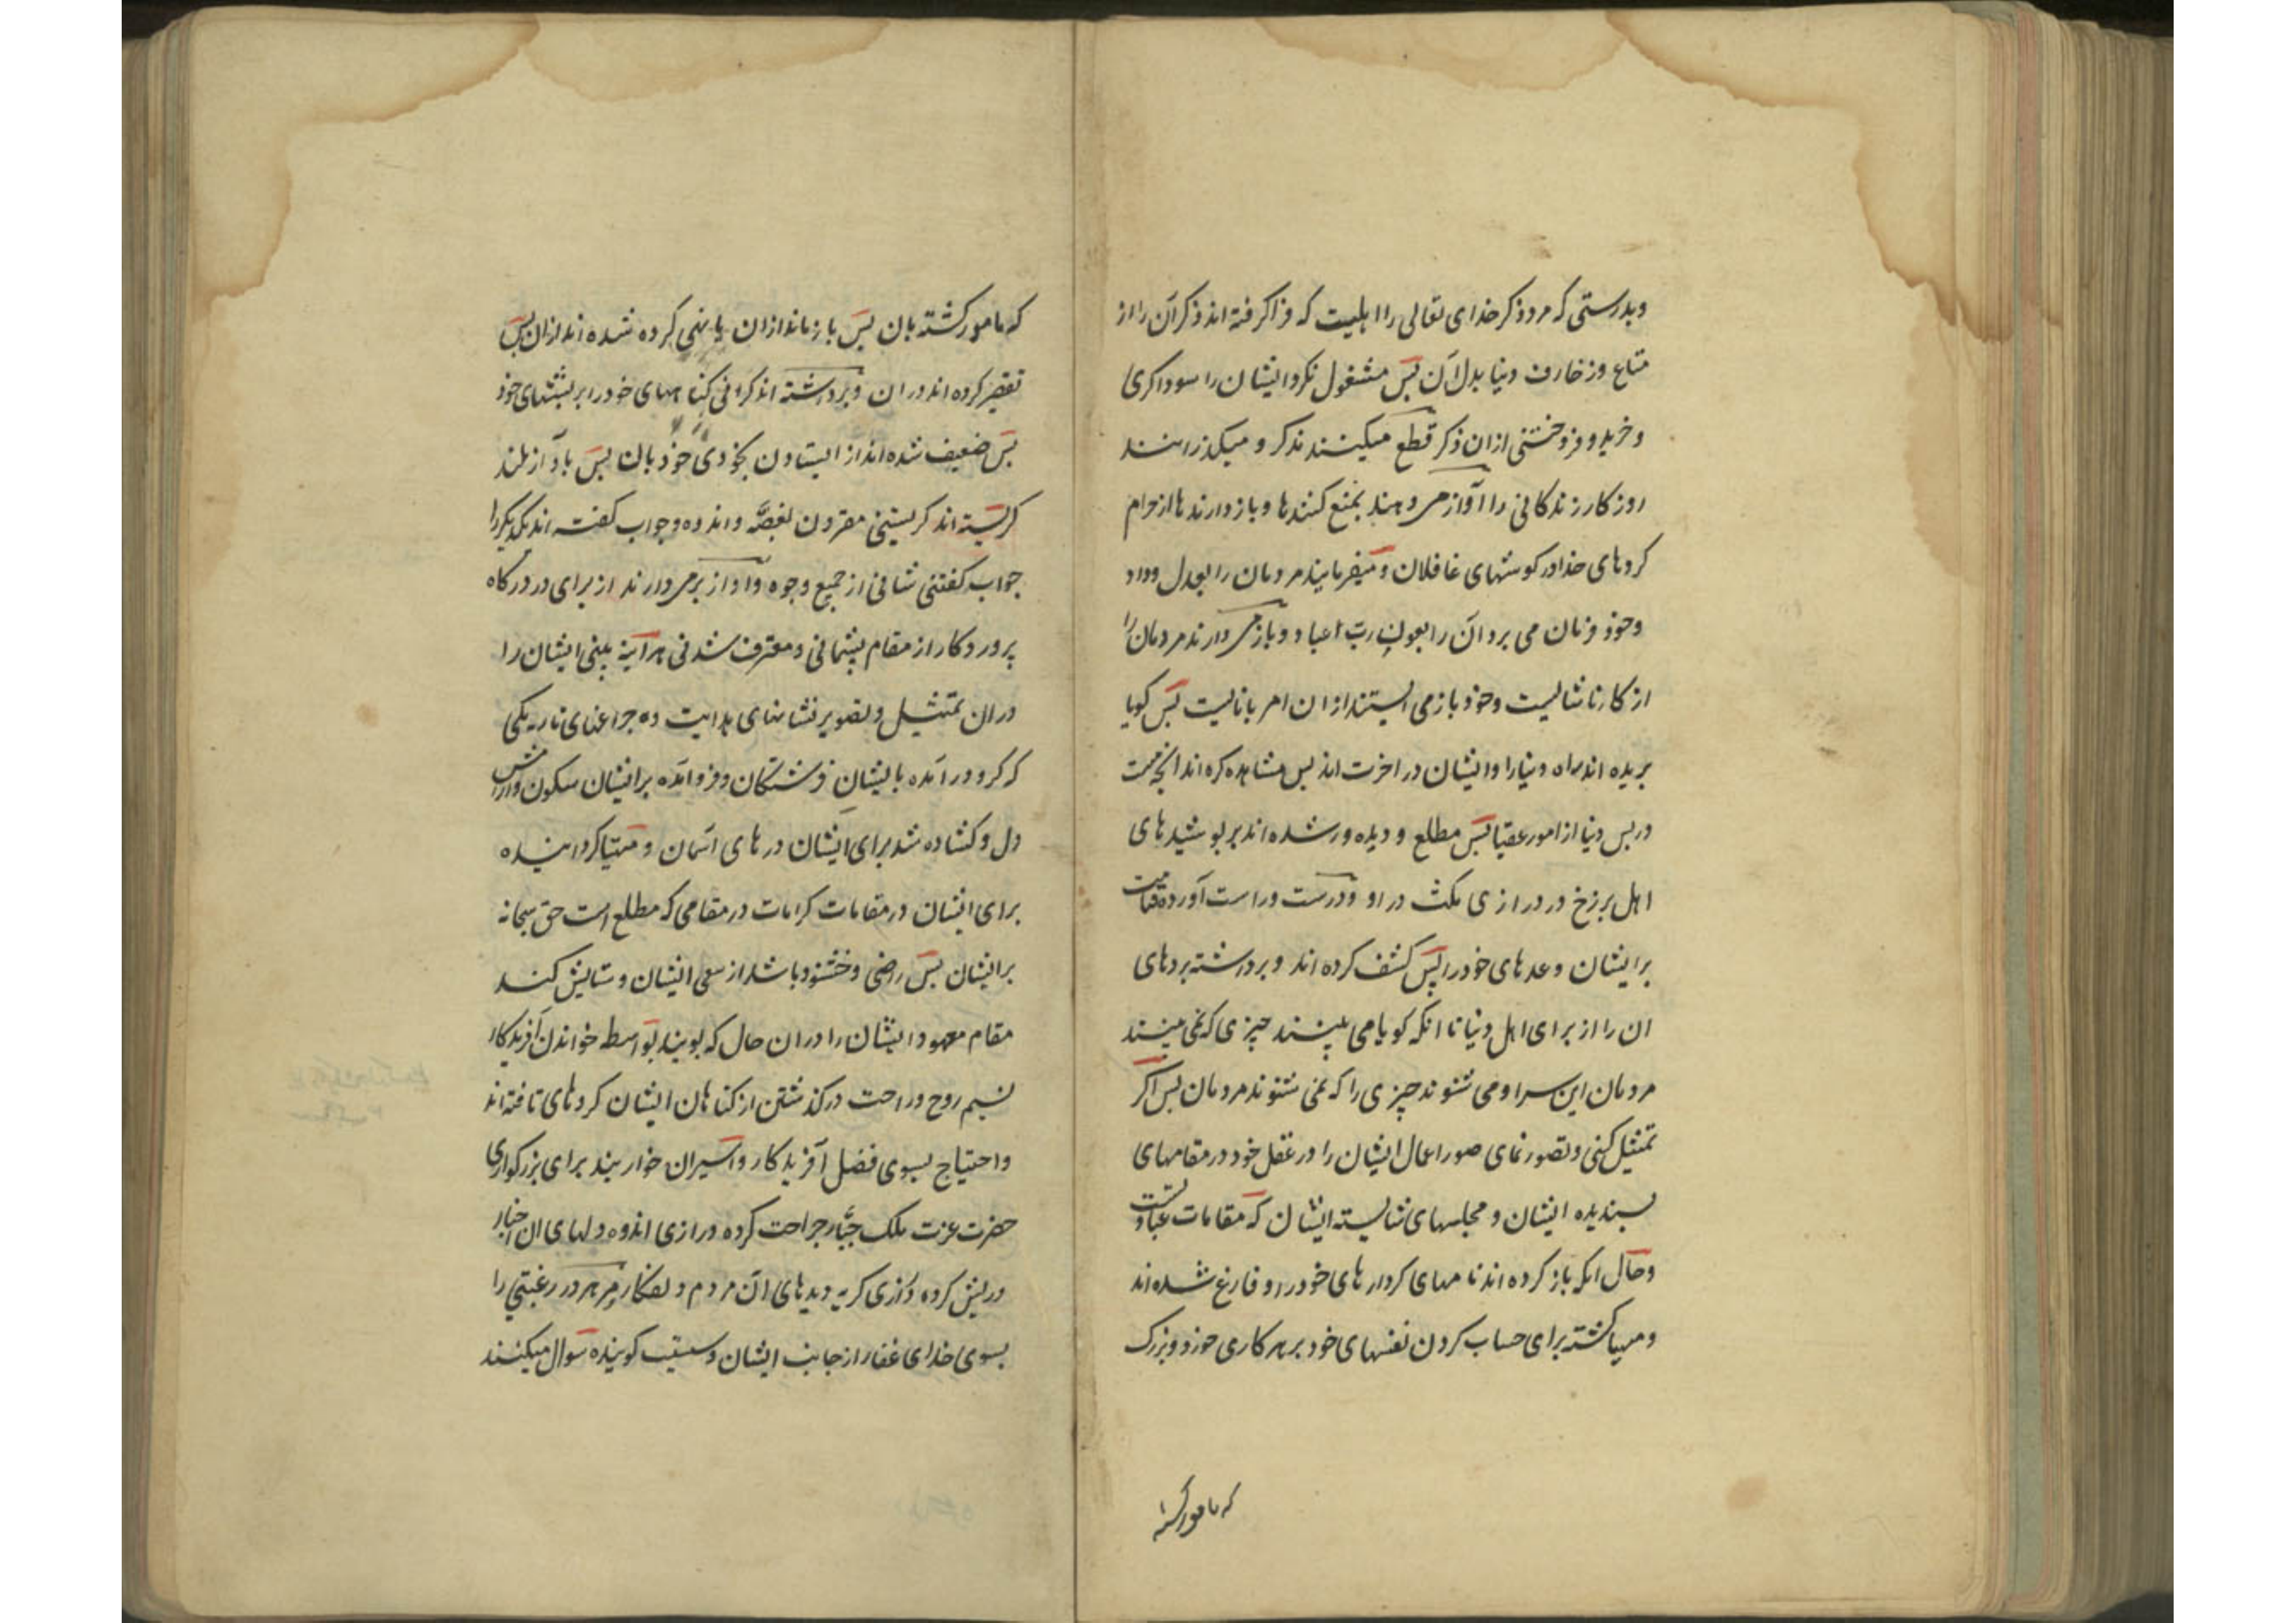 وبدرستی که مر ذکر خدای تعالی را اهلیست که فرا گرفته اند ذکر آن را از
متاع وزخارف دنیا بدل آن پس مشغول نکرد ایشان را سوداکری
و خرید و فروختنی ازان ذکر قطع میکنند بذکر و میکذرانند
روزکار زندکانی را آواز می دهند بمنع کنندها و بازدارندها از حرام
کردهای خدا در کوشهای غافلان و میفرمایند مردمان را بعدل و داد
وخود فرمان می برد آن را بعون رب اعباد و باز می دارند مردمان را
از کار ناشایست وخود باز می ایستند ازان امر بانایست پس کویا
بریده اند راه دنیا را و ایشان در اخرت اند پس مشاهده کرده اند انچه هست
در پس دنیا از امور عقبا پس مطلع و دیده ور شده اند بر پوشیدهای
اهل برزخ در درازی مکث در او و درست وراست آورده قیامت
بر ایشان وعدهای خود را پس کشف کرده اند و برداشته پردهای
ان را از برای اهل دنیا تا انکه کویا می بینند چیزی که نمی بینند
مردمان این سرا و می شنوند چیزی را که نمی شنوند مردمان پس اکر
تمثیل کنی و تصور نمای صور اعمال ایشان را در عقل خود در مقامهای
پسندیده ایشان و مجلسهای شایسته ایشان که مقامات عبادتست
وحال انکه باز کرده اند نامهای کردارهای خود را و فارغ شده اند
ومهیا کشته برای حساب کردن نفسهای خود بر هر کاری خورد و بزرک
که مامور کشته
که مامور کشته بان پس باز مانداز ان یا نهی کرده شده اند ازان پس
تقصیر کرده اند دران و برداشته اند کرانی کناههای خود را بر پشتهای خود
پس ضعیف شده اند از ایستادن بخودی خود بان پس باواز بلند
کریسته اند کریستنی مقرون بغصّه و اندوه وجواب کفته اند یکدیکر را
جواب کفتنی شافی از جمیع وجوه و اواز برمی دارند از برای در درکاه
پروردکار از مقام پشیمانی و معترف شدنی هر آینه بینی ایشان را
دران تمثیل و تصویر نشانهای هدایت ده چراغهای تاریکی
که کرد در آمده بایشان فرشتکان و فرو آمده بر ایشان سکون و ارامش
دل و کشاده شد برای ایشان درهای آسمان و مهیا کردانیده
برای ایشان در مقامات کرامات در مقامی که مطلع است حق سبحانه
بر ایشان پس راضی و خشنود باشد از سعی ایشان و ستایش کند
مقام معهود ایشان را دران حال که بویند بواسطه خواندن آفریدکار
نسیم روح و راحت در کذشتن از کناهان ایشان کردهای تافته اند
واحتیاج بسوی فضل آفریدکار و اسیران خواریند برای بزرکواری
حضرت عزت ملک جبّار جراحت کرده درازی اندوه دلهای ان اخیار
وریش کرده درازی کریه دیدهای آن مردم و لفکار مر هر در رغبتی را
بسوی خدای غفار از جانب ایشان دستیست کوبنده سوال میکنند